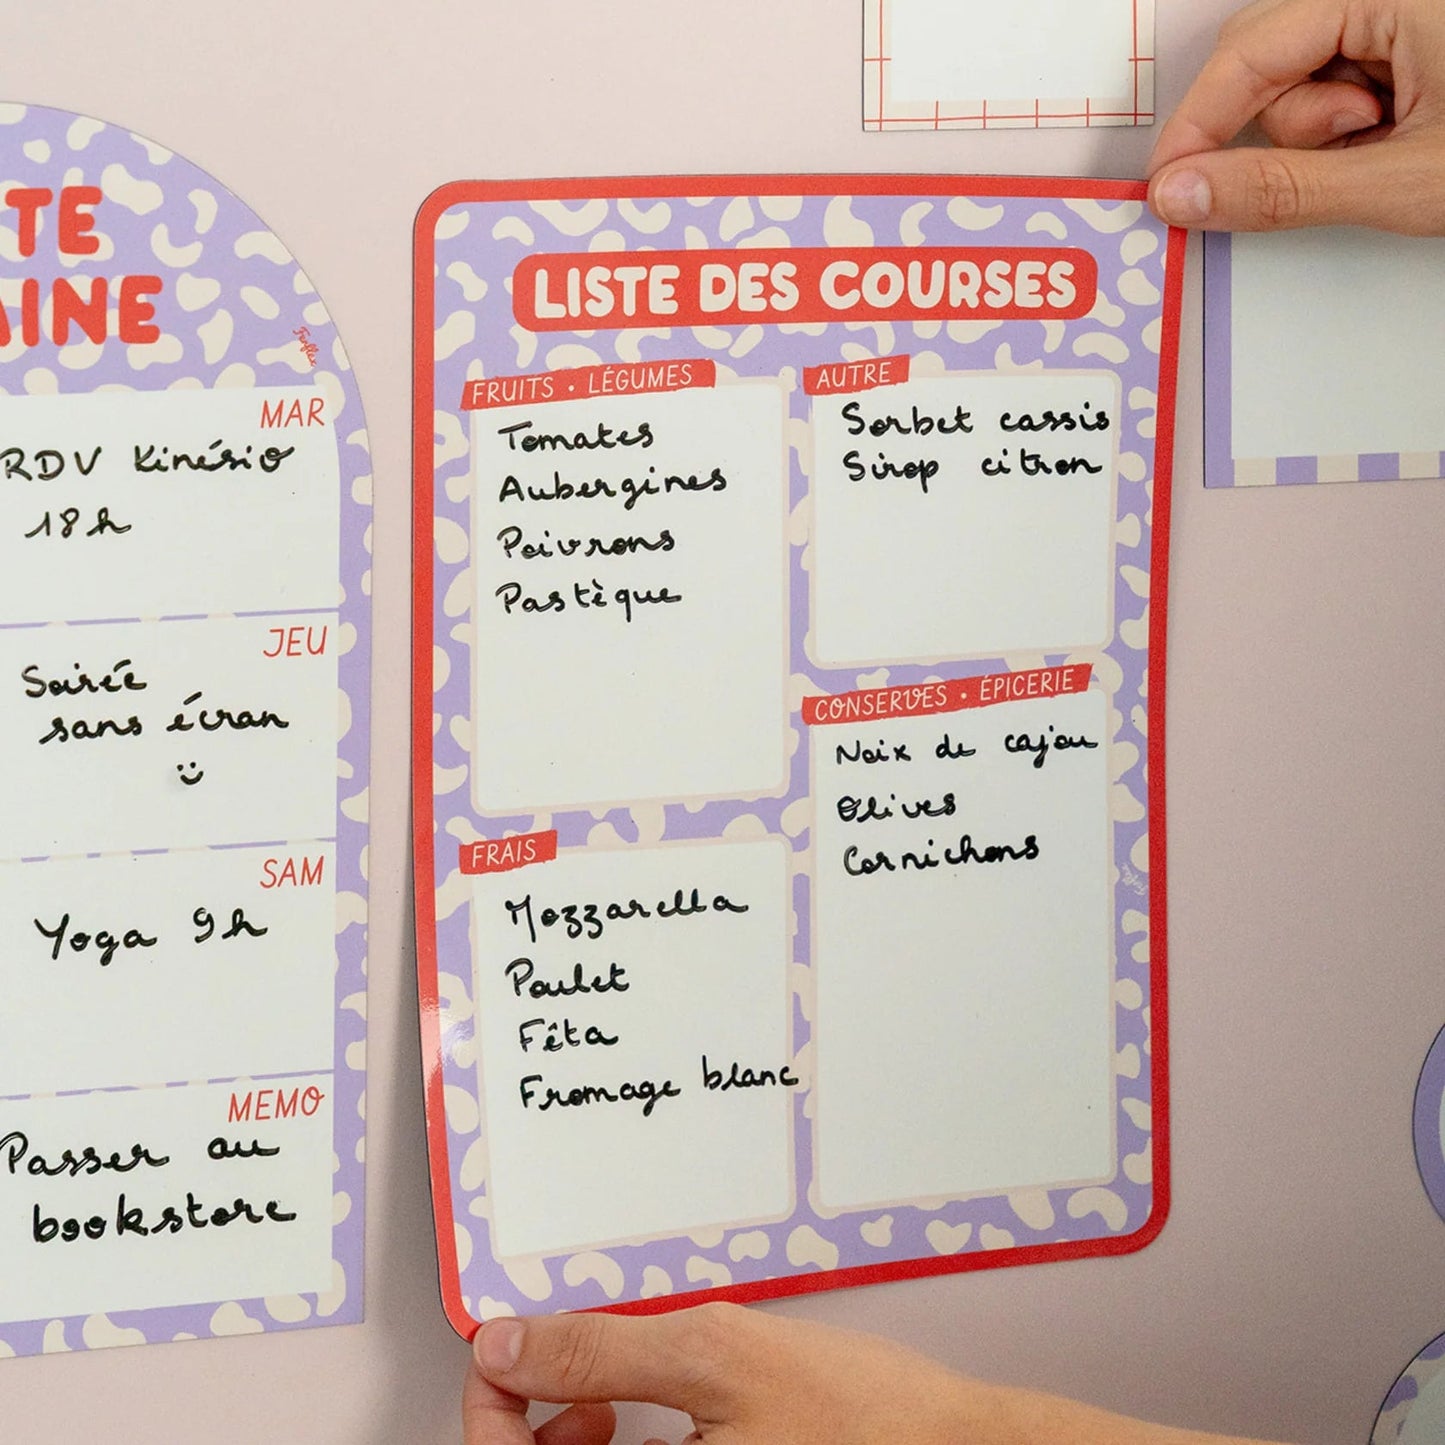 TE
AINE
Fenflex
MAR
RDV Kinésio
18h
JEU
Soirée
sans écran
SAM
Yoga 9h
MEMO
Passer au
bookstore
LISTE DES COURSES
FRUITS • LÉGUMES
Tomates
Aubergines
Poivrons
Pastèque
FRAIS
Mozzarella
Poulet
Fêta
Fromage blanc
AUTRE
Sorbet cassis
Sirop citron
CONSERVES • ÉPICERIE
Noix de cajou
Olives
Cornichons